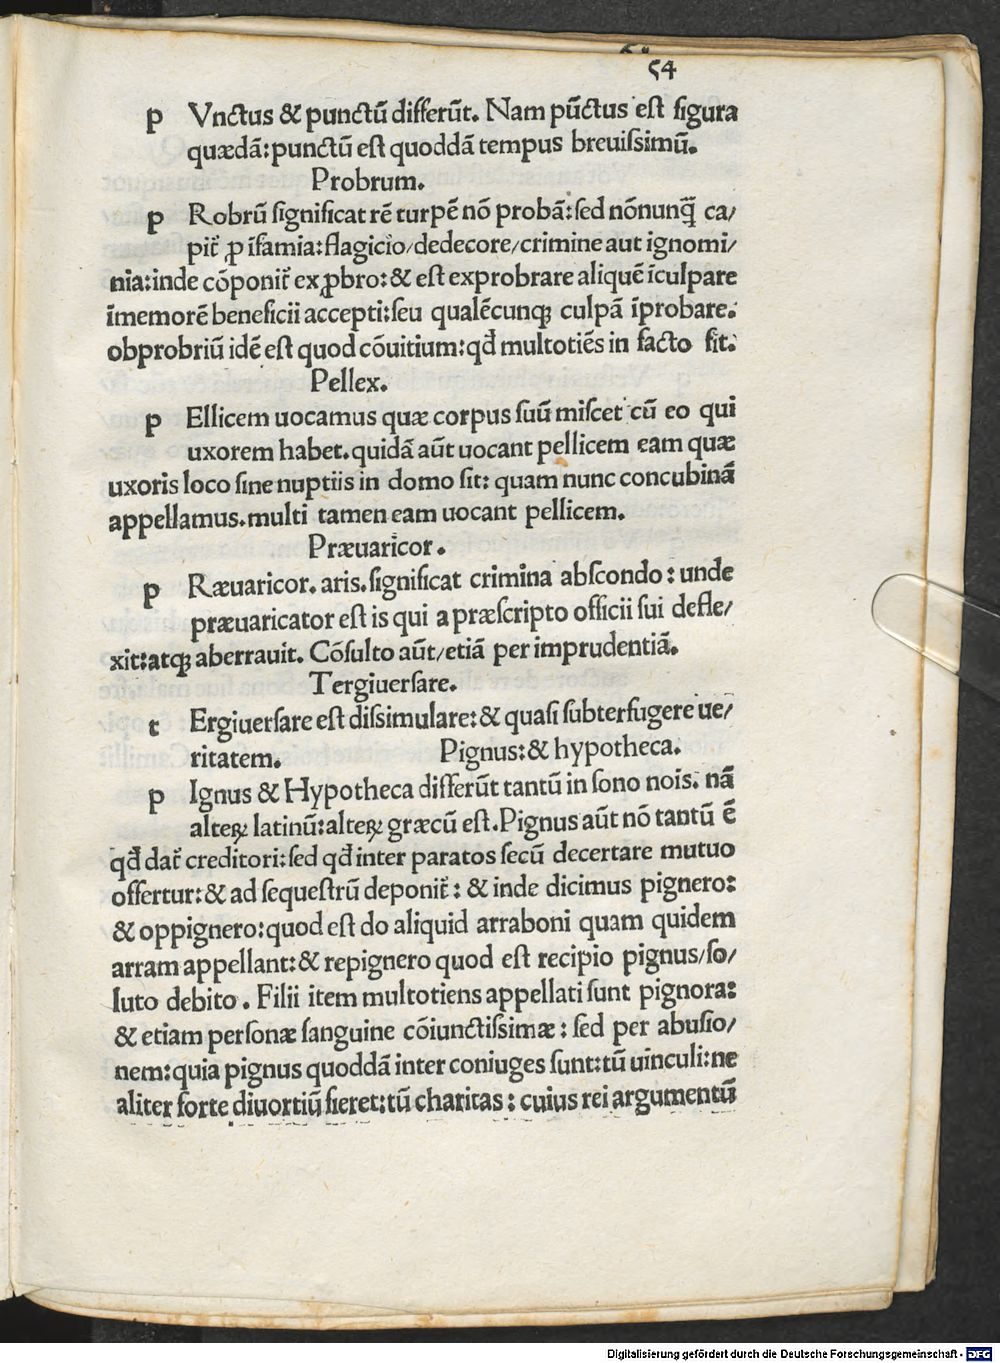 54
p Vnctus & punctū differūt. Nam pūctus est figura
quædā: punctū est quoddā tempus breuiſſimū.
Probrum.
p Robrū ſignificat rē turpē nō probā: ſed nōnunq̄ ca/
pit̄ ꝓ īfamia: flagicio/dedecore/crimine aut ignomi/
nia: inde cōponit̄ ex ꝓbro: & eſt exprobrare aliquē īculpare
īmemorē beneficii accepti: ſeu qualēcunqꝫ culpā īprobare.
obprobriū idē eſt quod cōuitium: qđ multotiēs in facto fit.
Pellex.
p Ellicem uocamus quæ corpus ſuū miſcet cū eo qui
uxorem habet. quidā aūt uocant pellicem eam quæ
uxoris loco ſine nuptiis in domo ſit: quam nunc concubinā
appellamus. multi tamen eam uocant pellicem.
Præuaricor.
p Ræuaricor. aris. ſignificat crimina abſcondo: unde
præuaricator eſt is qui a præſcripto officii ſui defle/
xit: atqꝫ aberrauit. Cōſulto aūt/etiā per imprudentiā.
Tergiuerſare.
t Ergiuerſare eſt diſſimulare: & quaſi ſubterfugere ue/
ritatem. Pignus: & hypotheca.
p Ignus & Hypotheca differūt tantū in ſono nois. nā
alteꝝ latinū: alteꝝ græcū eſt. Pignus aūt nō tantū ē
qđ dat̄ creditori: ſed qđ inter paratos ſecū decertare mutuo
offertur: & ad ſequeſtrū deponit̄: & inde dicimus pignero:
& oppignero: quod eſt do aliquid arraboni quam quidem
arram appellant: & repignero quod eſt recipio pignus/ſo/
luto debito. Filii item multotiens appellati ſunt pignora:
& etiam perſonæ ſanguine cōiunctiſſimæ: ſed per abuſio/
nem: quia pignus quoddā inter coniuges ſunt: tū uīnculi: ne
aliter forte diuortiū fieret: tū charitas: cuius rei argumentū
Digitalisierung gefördert durch die Deutsche Forschungsgemeinschaft - DFG